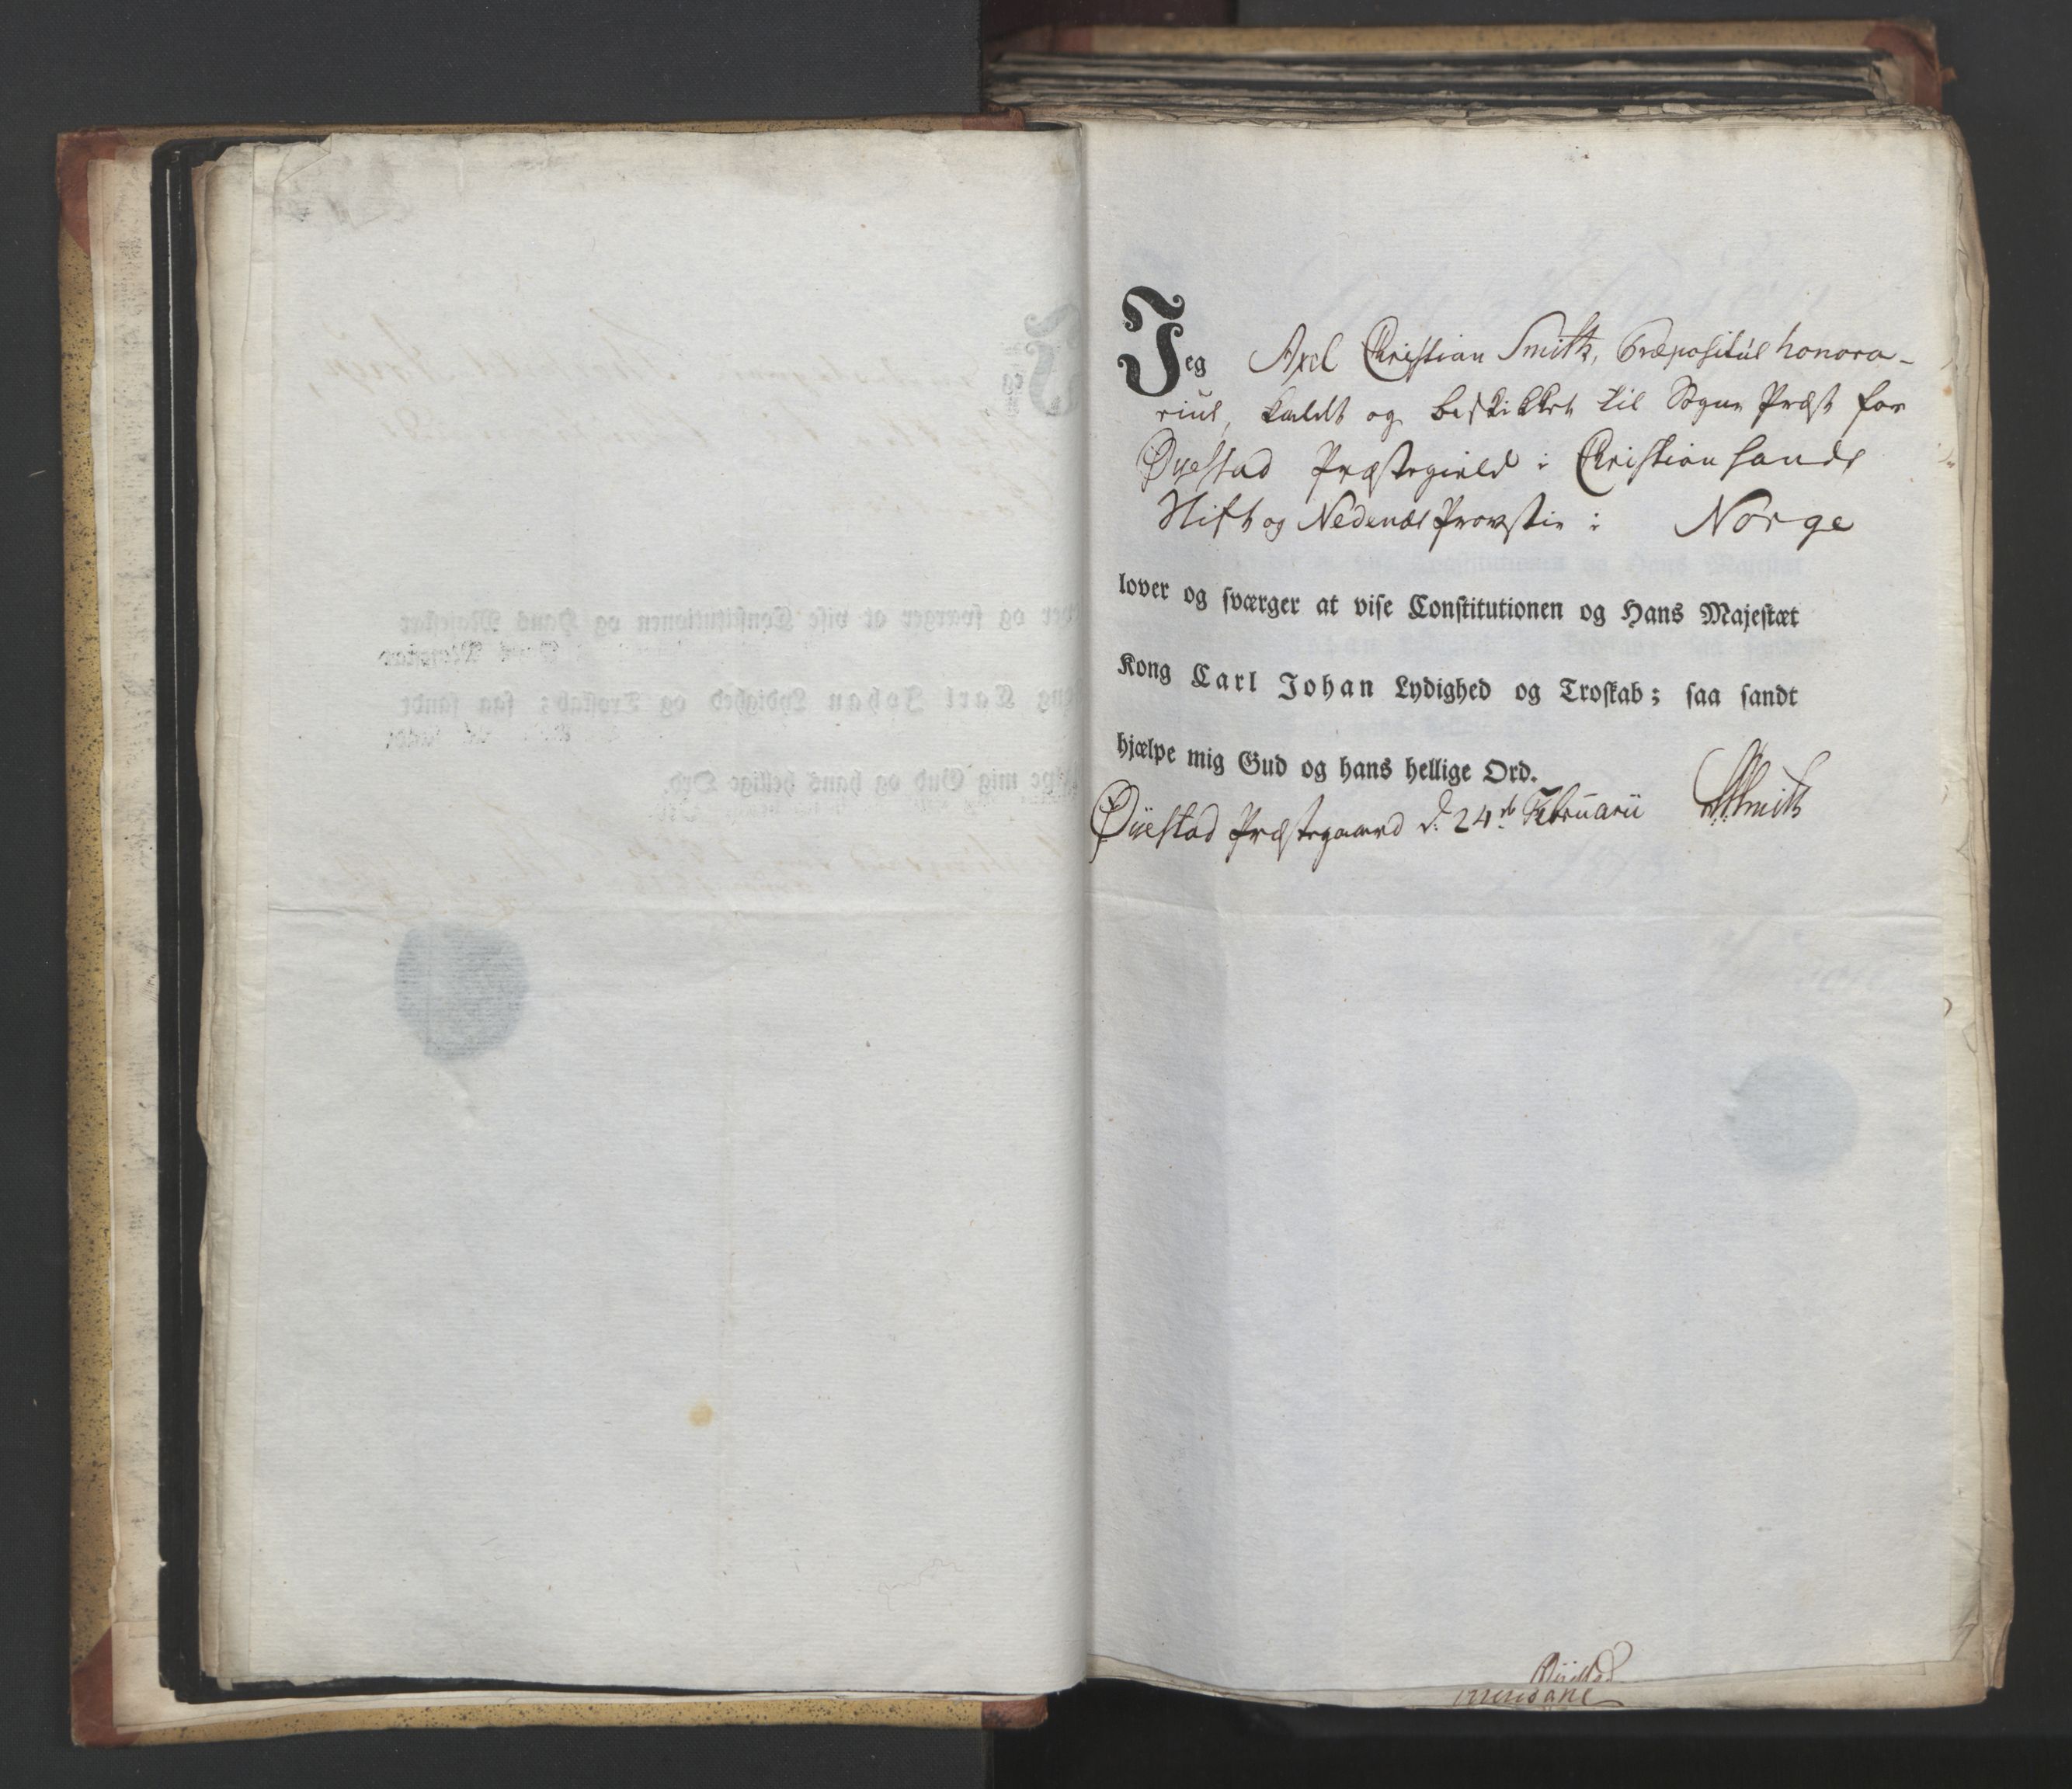 Jeg Axel Christian Smith, Præpositus honora-
rius, kaldt og beskikket til Sogne Præst for
Øyestad Præstegield i Christiansands
Stift og Nedenæs Provstie i Norge
lover og sværger at vise Constitutionen og Hans Majestæt
Kong Carl Johan Lydighed og Troskab; saa sandt
hjælpe mig Gud og hans hellige Ord.
Øiestad Præstegaard d: 24de Februarii ACSmith